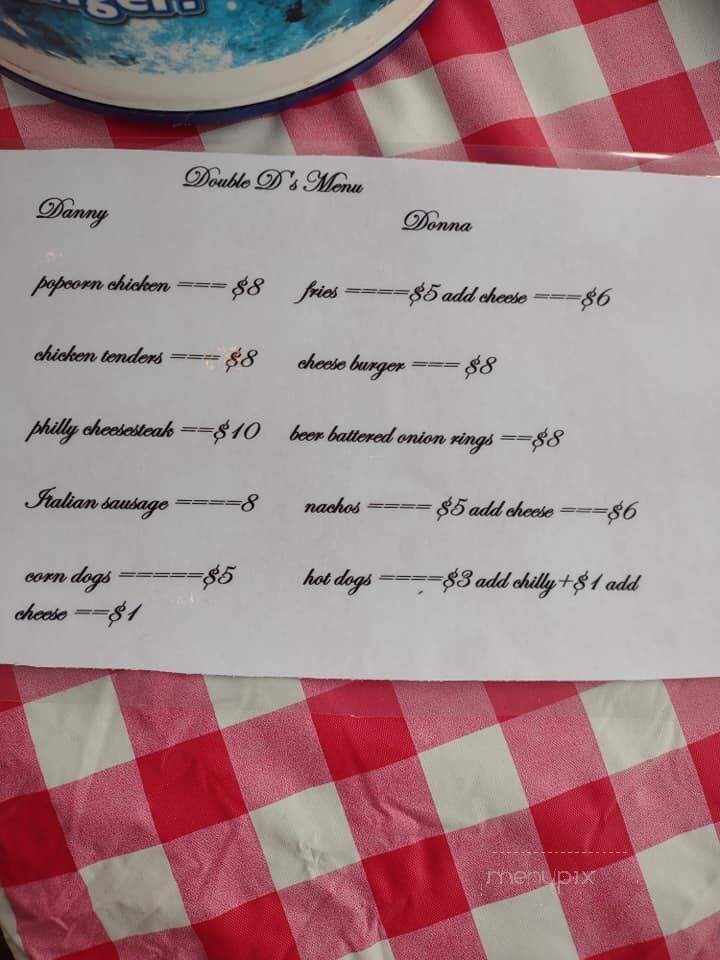 Double D's Menu
Danny Donna
popcorn chicken === $8 fries ====$5 add cheese ===$6
chicken tenders === $8 cheese burger === $8
philly cheesesteak ==$10 beer battered onion rings ==$8
Italian sausage ====8 nachos ==== $5 add cheese ===$6
corn dogs =====$5 hot dogs ====$3 add chilly+$1 add
cheese ==$1
menupix